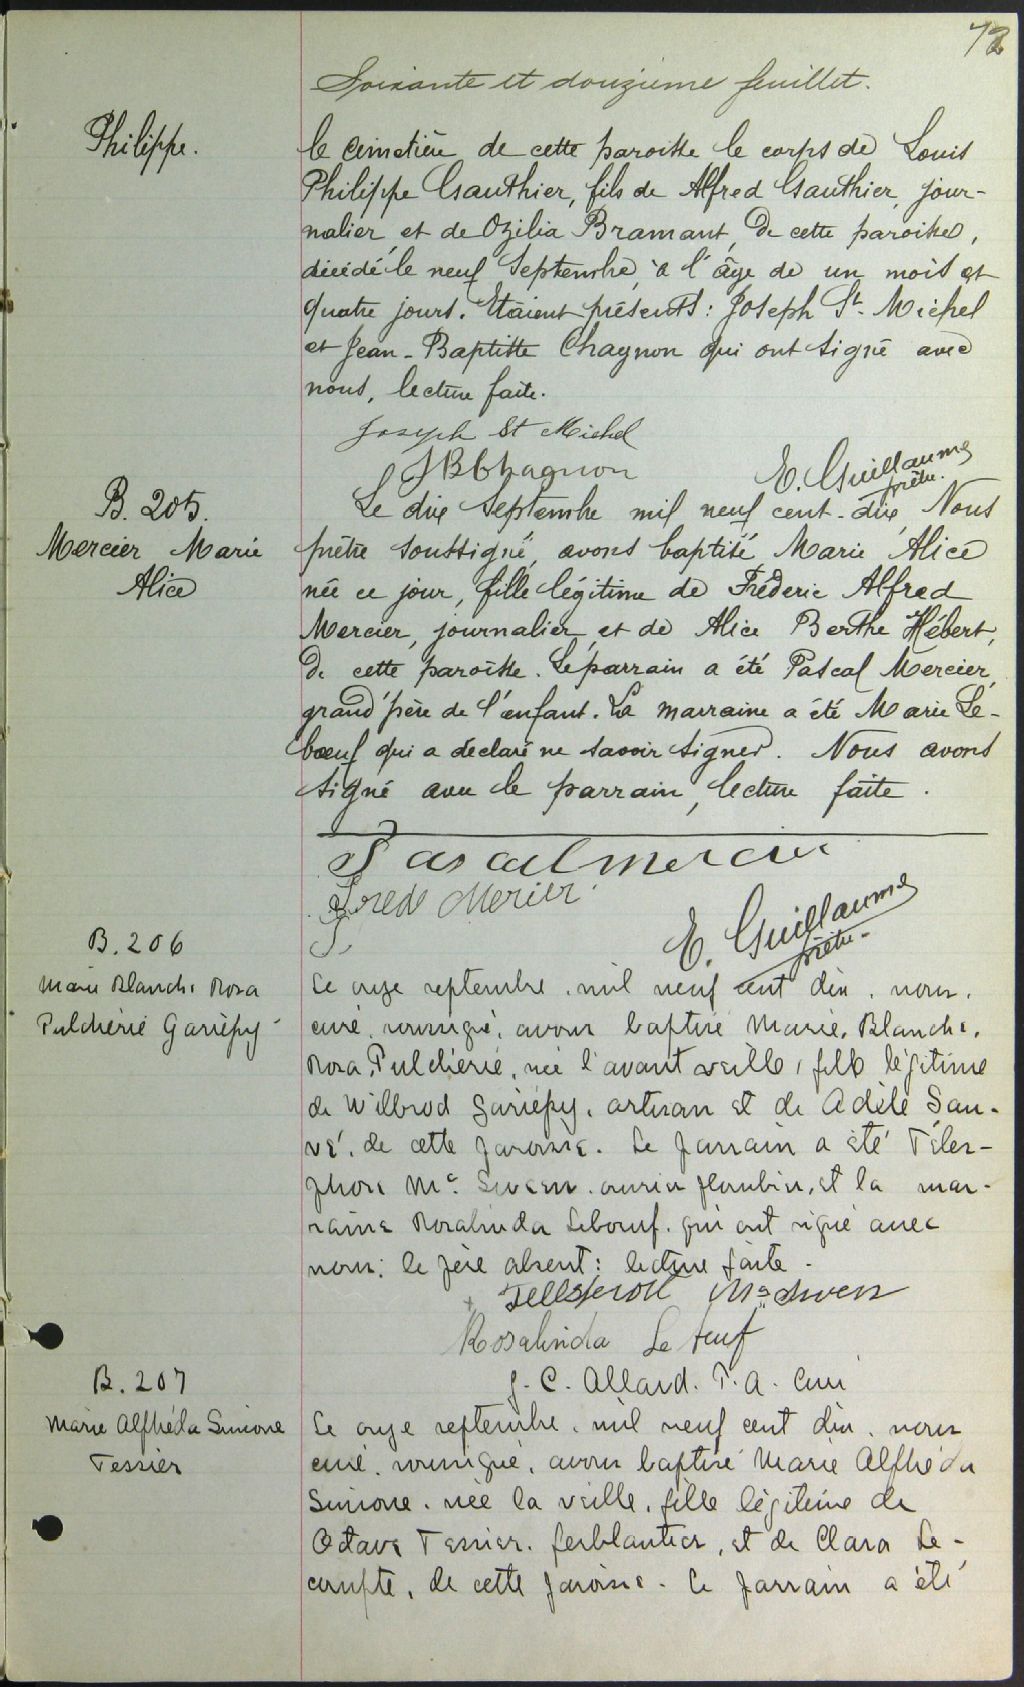 72
Soixante et douzième feuillet.
Philippe.
le cimetière de cette paroisse le corps de Louis
Philippe Gauthier, fils de Alfred Gauthier, jour-
nalier et de Ozilia Bramant, de cette paroisse,
décédé le neuf Septembre, à l'âge de un mois et
quatre jours. Etaient présents : Joseph St. Michel
et Jean-Baptiste Chagnon qui ont signé avec
nous, lecture faite.
Joseph St Michel
J B Chagnon
E. Guillaume
prêtre.
B. 205.
Mercier Marie
Alice
Le dix Septembre mil neuf cent-dix, Nous
prêtre soussigné, avons baptisé Marie Alice
née ce jour, fille légitime de Fréderic Alfred
Mercier, journalier, et de Alice Berthe Hébert,
de cette paroisse. Le parrain a été Pascal Mercier,
grand'père de l'enfant. La marraine a été Marie Le-
bœuf qui a déclaré ne savoir signer. Nous avons
signé avec le parrain, lecture faite.
Pascal mercier
Fred Mercier
E. Guillaume
prêtre-
B. 206
Marie Blanche Rosa
Pulchérie Gariépy
Le onze septembre, mil neuf cent dix, nous,
curé, soussigné, avons baptisé Marie, Blanche,
Rosa, Pulchérie, née l'avant veille, fille légitime
de Wilbrod Gariépy, artisan et de Adèle Sau-
vé, de cette paroisse. Le parrain a été Téles-
phore Mc. Ewen, ouvrier plombier, et la mar-
raine Rosalinda Lebœuf, qui ont signé avec
nous; le père absent: lecture faite-
Mc Ewen
Rosalinda Le beuf
J. C. Allard. P. A. Curé
B. 207
Marie Alfhéda Simone
Tessier
Le onze septembre, mil neuf cent dix, nous
curé, soussigné, avons baptisé Marie Alfhéda
Simone, née la veille, fille légitime de
Octave Tessier, ferblantier, et de Clara Le-
compte, de cette paroisse. Le parrain a été